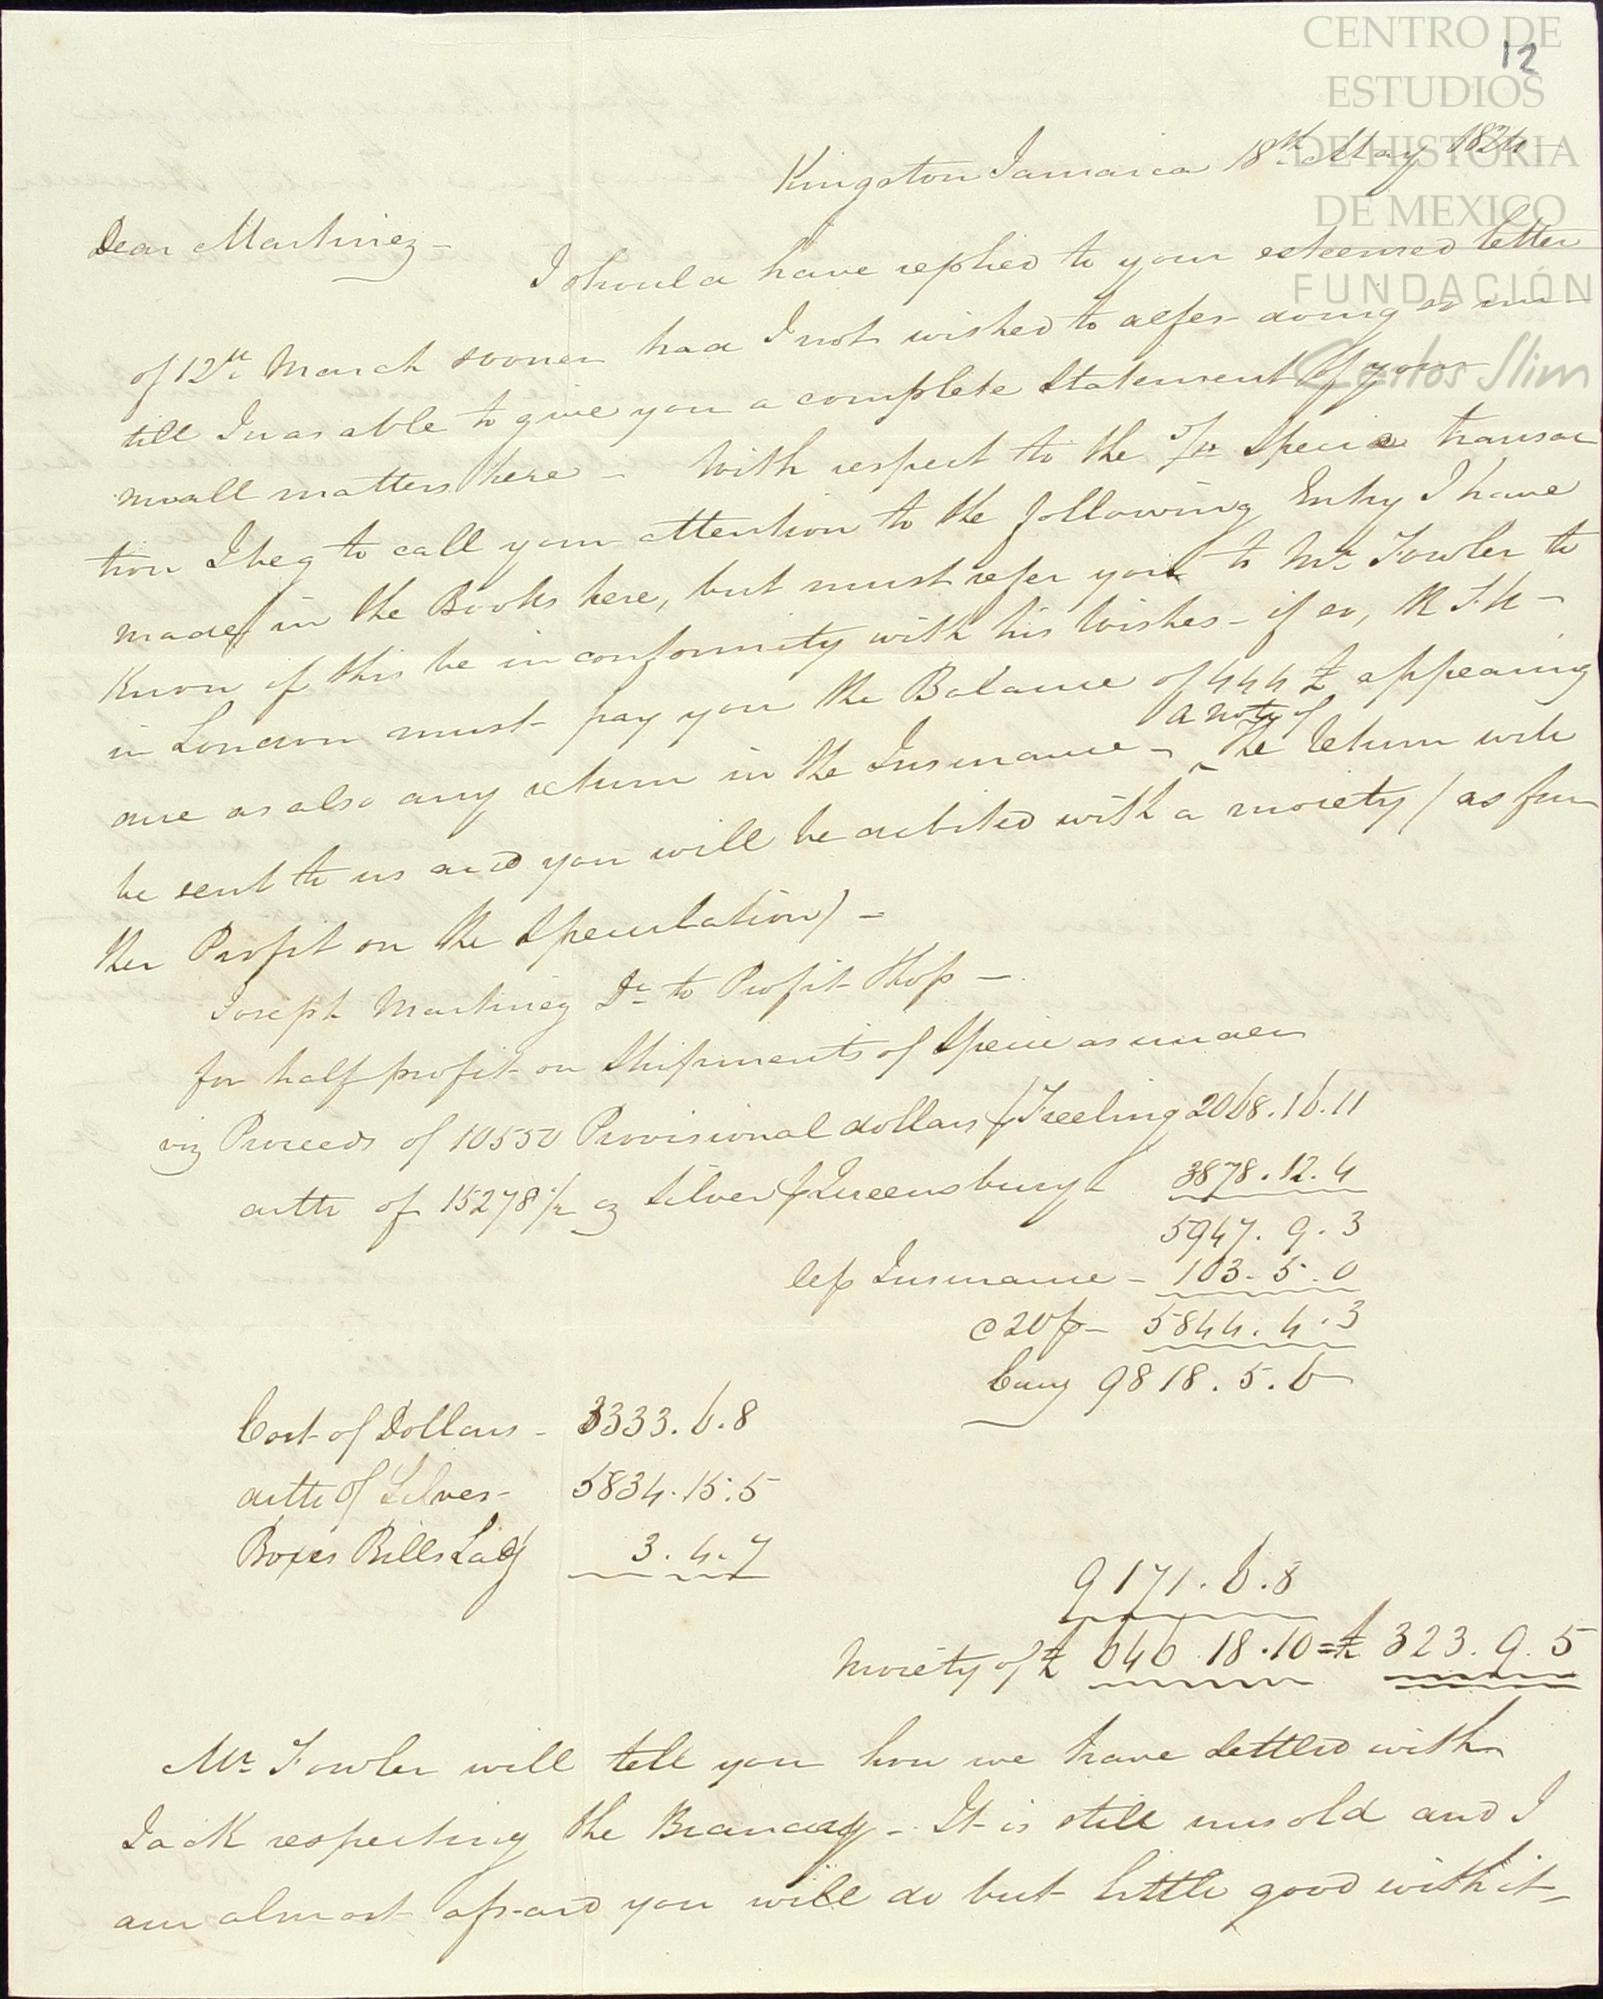 CENTRO DE
ESTUDIOS
DE HISTORIA
DE MEXICO
FUNDACIÓN
Carlos Slim
12
Kingston Jamaica 18th May 1824
Dear Martinez -
I should have replied to your esteemed letter
of 12th March sooner had I not wished to defer doing so un-
till I was able to give you a complete Statement of your
small matters here - With respect to the Specie transac
tion I beg to call your attention to the following Entry I have
made in the Books here, but must refer you to Mr Fowler to
know if this be in conformity with his wishes - if so, R F H -
in London must pay you the Balance of 444 £ appearing
due as also any return in the Insurance - a moty of the return will
be sent to us and you will be debited with a moiety (as fur
ther Profit on the Speculation) -
Joseph Martinez Dr to Profit & Loss -
for half profit on Shipments of Specie as under
viz Proceeds of 10550 Provisional dollars p Freeling 2068.16.11
ditto of 15278 1/2 oz Silver p Queensbury 3878.12.4
5947. 9. 3
less Insurance - 103. 5. 0
5844. 4. 3
Cury 9818. 5. 6
Cost of Dollars - 3333. 6. 8
ditto of Silver - 5834. 15. 5
Boxes Bills Ladg 3. 4. 7
9171. 6. 8
Moiety of £ 646. 18. 10 = £ 323. 9. 5
Mr Fowler will tell you how we have settled with
Jack respecting the Brandy - It is still unsold and I
am almost afraid you will do but little good with it -